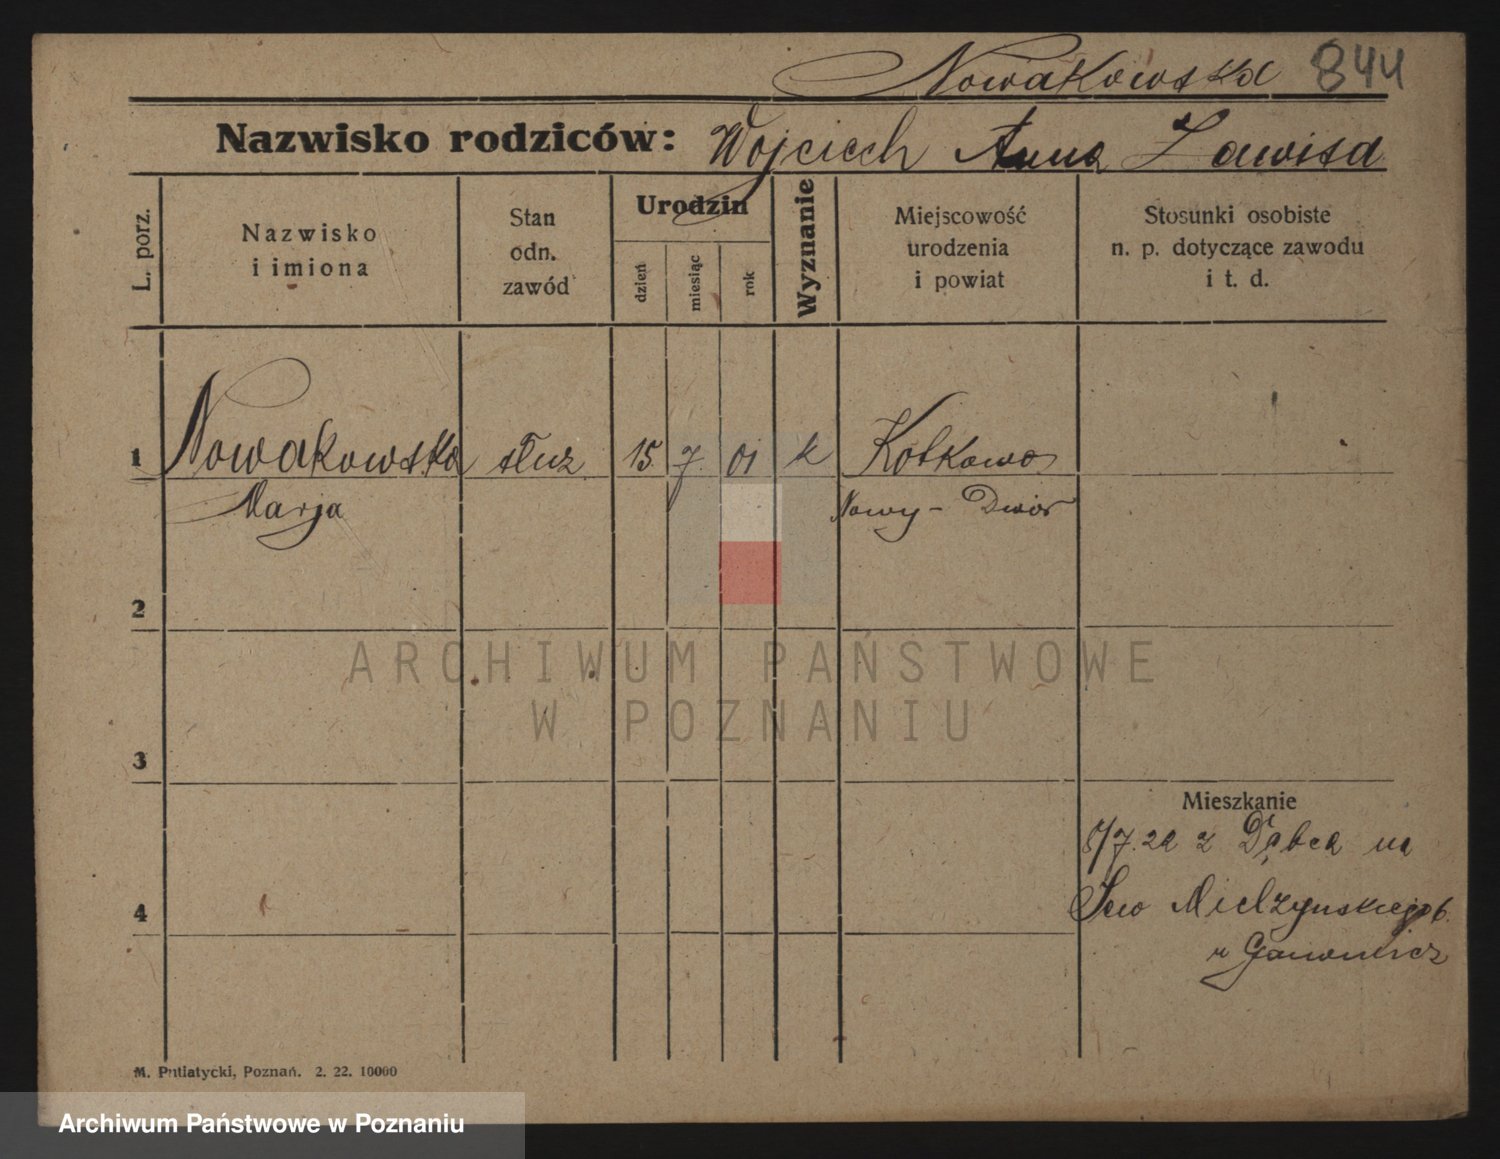 Nowakowska 844
Nazwisko rodziców: Wojciech Anna Zawisa
L. porz.
Nazwisko
i imiona
Stan
odn.
zawód
Urodzin
dzień
miesiąc
rok
Wyznanie
Miejscowość
urodzenia
i powiat
Stosunki osobiste
n. p. dotyczące zawodu
i t. d.
1 Nowakowska służ 15. 7. 01 k Kotkowo
Marja Nowy-Dwór
2
3
Mieszkanie
8/7.22 z Dębca na
Sew Mielzynskiego 6.
4
u Ganowicz
M. Putiatycki, Poznań. 2. 22. 10000
ARCHIWUM PAŃSTWOWE
W POZNANIU
Archiwum Państwowe w Poznaniu